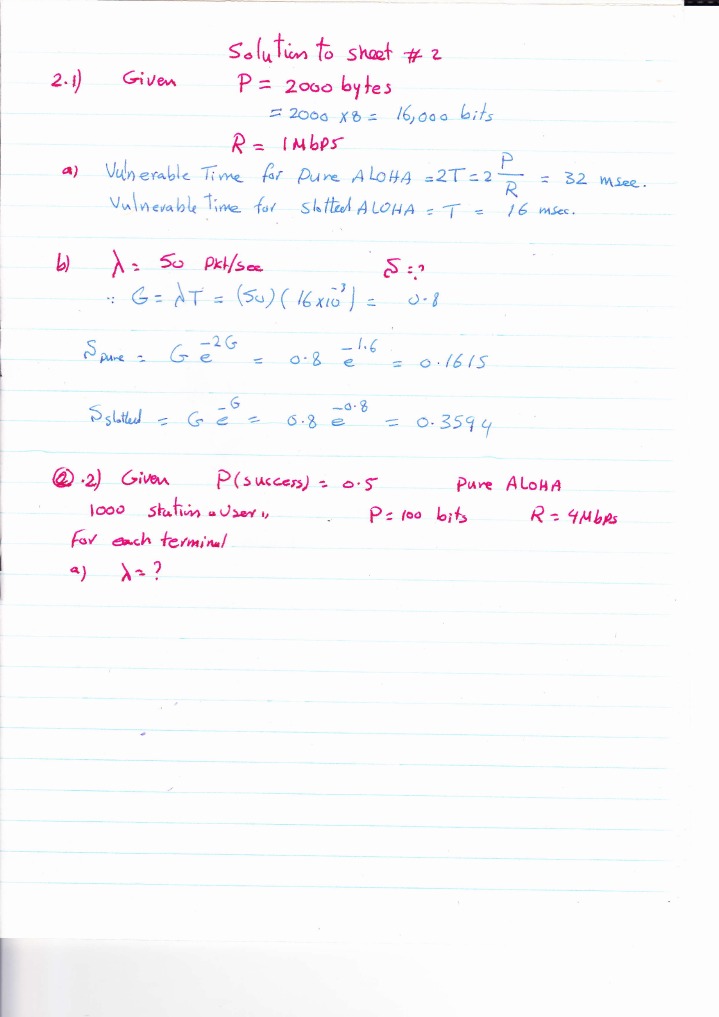 Solution to sheet # 2
2.1) Given P = 2000 bytes
= 2000 x 8 = 16,000 bits
R = 1 Mbps
a) Vulnerable Time for Pure ALOHA = 2T = 2 P/R = 32 msec.
Vulnerable Time for Slotted ALOHA = T = 16 msec.
b) λ = 50 Pkt/sec S = ?
∵ G = λT = (50)(16x10⁻³) = 0.8
S pure = G e^-2G = 0.8 e^-1.6 = 0.1615
S slotted = G e^-G = 0.8 e^-0.8 = 0.3594
②.2) Given P(success) = 0.5 Pure ALOHA
1000 station "User" P = 100 bits R = 4 Mbps
for each terminal
a) λ = ?